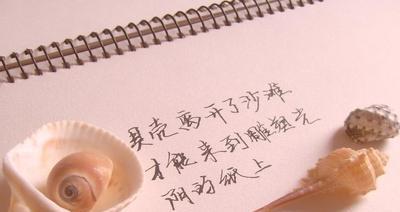 贝壳离开了沙滩
才能来到雕塑光
阴的纸上